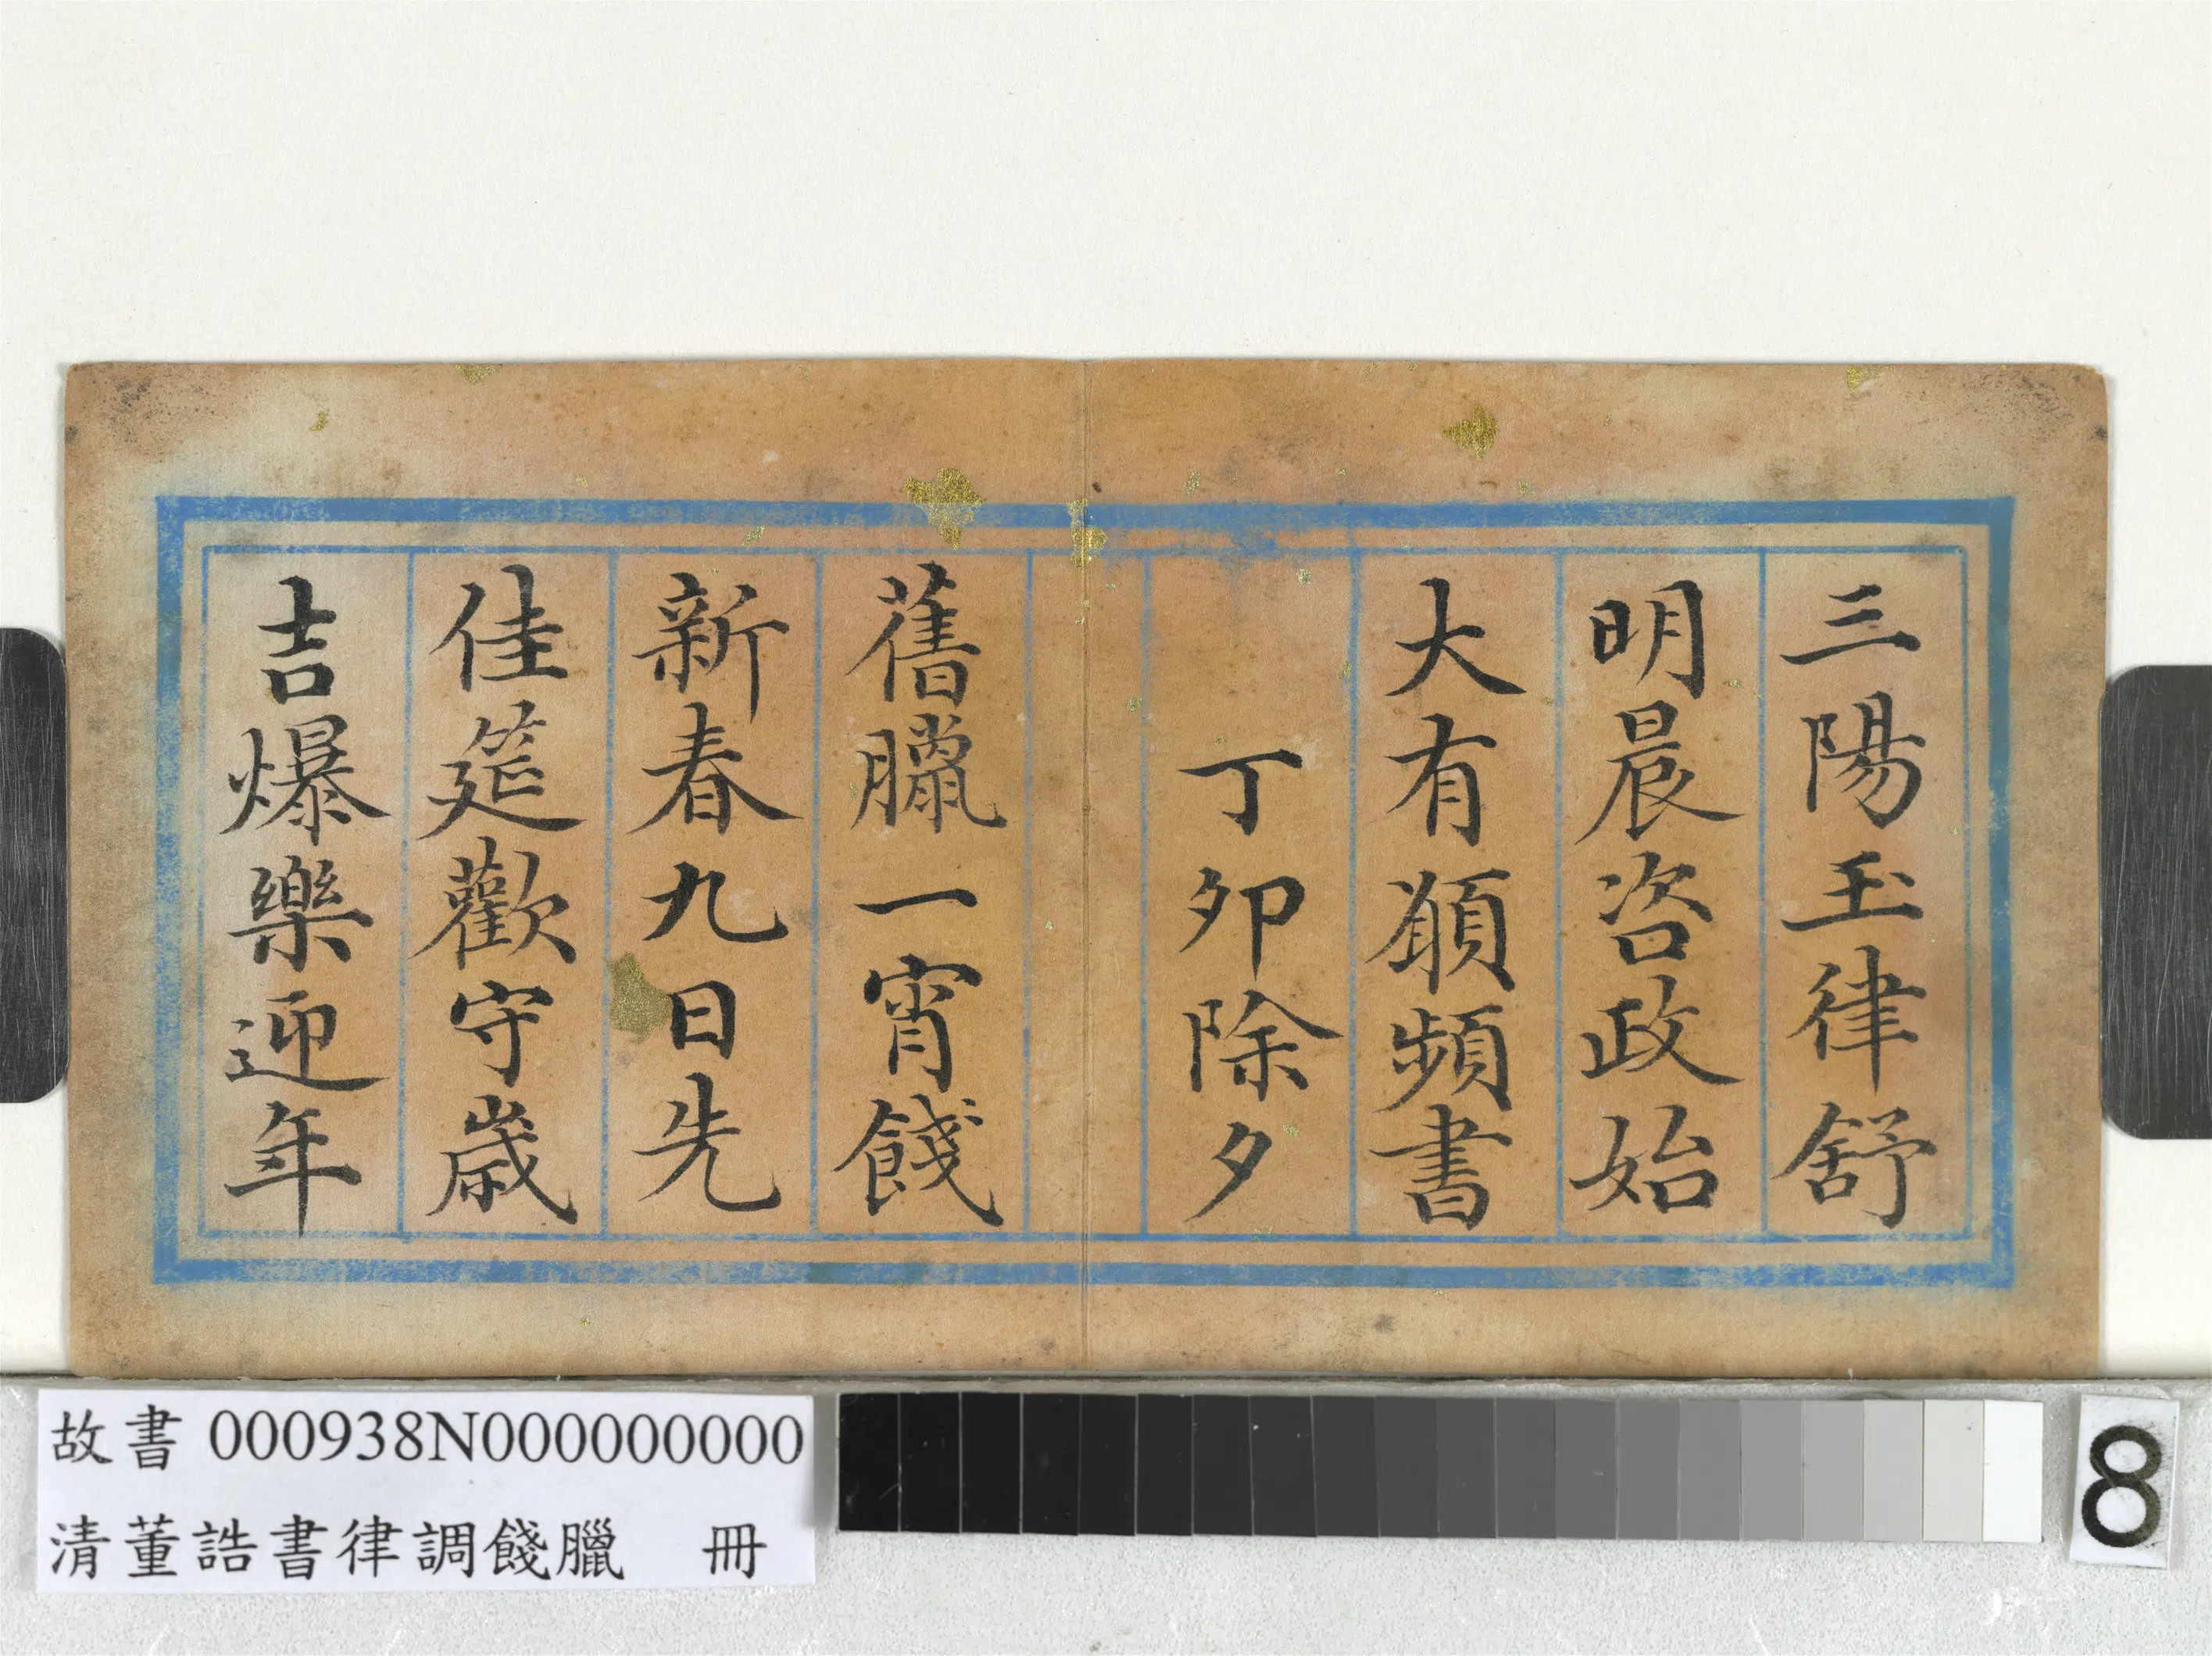 三陽玉律舒
明晨咨政始
大有願頻書
丁卯除夕
舊臘一宵餞
新春九日先
佳筵歡守歲
吉爆樂迎年
故書 000938N000000000
清董誥書律調餞臘 冊
8